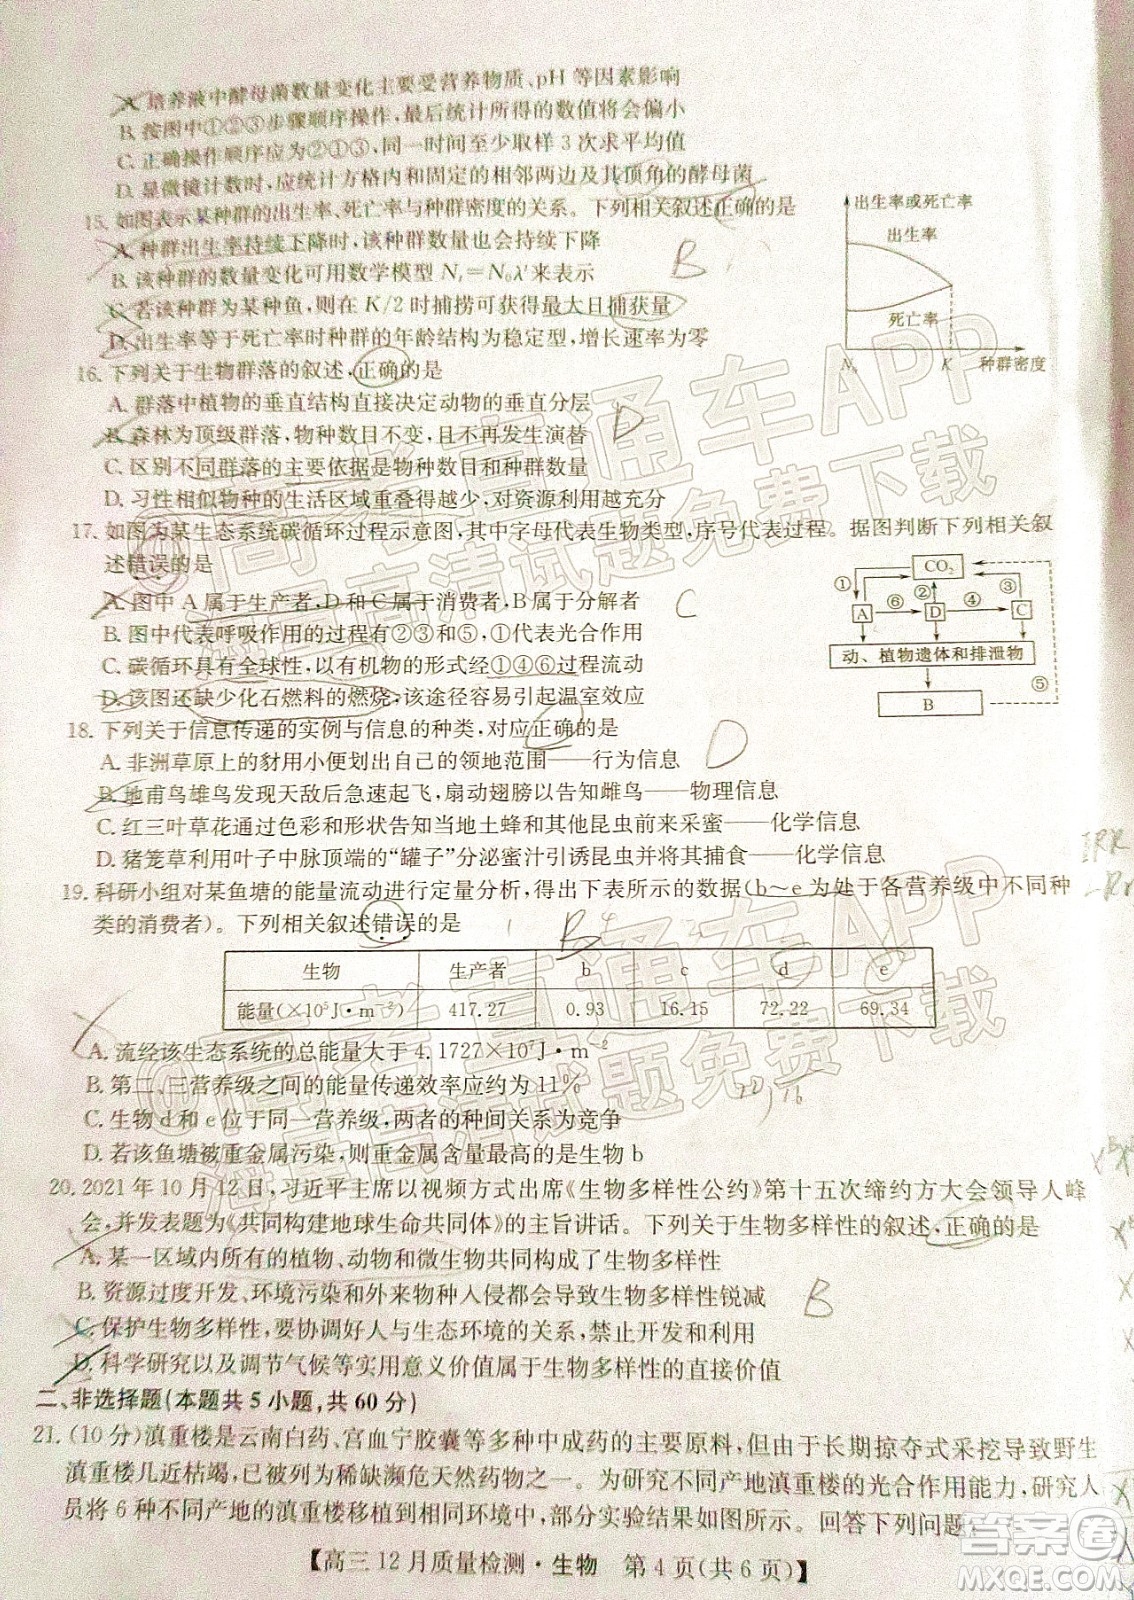 A. 培养液中酵母菌数量变化主要受营养物质、pH 等因素影响
B. 按图中①②③步骤顺序操作，最后统计所得的数值将会偏小
C. 正确操作顺序应为②①③，同一时间至少取样 3 次求平均值
D. 显微镜计数时，应统计方格内和固定的相邻两边及其顶角的酵母菌
15. 如图表示某种群的出生率、死亡率与种群密度的关系。下列相关叙述正确的是
A. 种群出生率持续下降时，该种群数量也会持续下降
B. 该种群的数量变化可用数学模型 Nₜ=N₀λᵗ来表示
C. 若该种群为某种鱼，则在 K/2 时捕捞可获得最大日捕获量
D. 出生率等于死亡率时种群的年龄结构为稳定型，增长速率为零
出生率或死亡率
出生率
死亡率
N₀ K 种群密度
B
16. 下列关于生物群落的叙述，正确的是
A. 群落中植物的垂直结构直接决定动物的垂直分层
B. 森林为顶级群落，物种数目不变，且不再发生演替
C. 区别不同群落的主要依据是物种数目和种群数量
D. 习性相似物种的生活区域重叠得越少，对资源利用越充分
D
17. 如图为某生态系统碳循环过程示意图，其中字母代表生物类型，序号代表过程。据图判断下列相关叙
述错误的是
A. 图中 A 属于生产者，D 和 C 属于消费者，B 属于分解者
B. 图中代表呼吸作用的过程有②③和⑤，①代表光合作用
C. 碳循环具有全球性，以有机物的形式经①④⑥过程流动
D. 该图还缺少化石燃料的燃烧，该途径容易引起温室效应
C
CO₂
① ② ③
A ⑥ D ④ C
动、植物遗体和排泄物
⑤
B
18. 下列关于信息传递的实例与信息的种类，对应正确的是
A. 非洲草原上的豺用小便划出自己的领地范围——行为信息
B. 地甫鸟雄鸟发现天敌后急速起飞，扇动翅膀以告知雌鸟——物理信息
C. 红三叶草花通过色彩和形状告知当地土蜂和其他昆虫前来采蜜——化学信息
D. 猪笼草利用叶子中脉顶端的“罐子”分泌蜜汁引诱昆虫并将其捕食——化学信息
D
19. 科研小组对某鱼塘的能量流动进行定量分析，得出下表所示的数据(b～e 为处于各营养级中不同种
类的消费者)。下列相关叙述错误的是
B
生物 生产者 b c d e
能量(×10⁵J·m⁻²) 417.27 0.93 16.15 72.22 69.34
A. 流经该生态系统的总能量大于 4.1727×10⁷J·m⁻²
B. 第二、三营养级之间的能量传递效率应约为 11%
C. 生物 d 和 e 位于同一营养级，两者的种间关系为竞争
D. 若该鱼塘被重金属污染，则重金属含量最高的是生物 b
20. 2021 年 10 月 12 日，习近平主席以视频方式出席《生物多样性公约》第十五次缔约方大会领导人峰
会，并发表题为《共同构建地球生命共同体》的主旨讲话。下列关于生物多样性的叙述，正确的是
A. 某一区域内所有的植物、动物和微生物共同构成了生物多样性
B. 资源过度开发、环境污染和外来物种入侵等都会导致生物多样性锐减
C. 保护生物多样性，要协调好人与生态环境的关系，如禁止开发和利用
D. 科学研究以及调节气候等实用意义价值属于生物多样性的直接价值
B
二、非选择题(本题共 5 小题，共 60 分)
21. (10 分)滇重楼是云南白药、宫血宁胶囊等多种中成药的主要原料，但由于长期掠夺式采挖导致野生
滇重楼几近枯竭，已被列为我国稀缺濒危天然药物之一。为研究不同产地滇重楼的光合作用能力，研究人
员将 6 种不同产地的滇重楼移植到相同环境中，部分实验结果如图所示。回答下列问题：
【高三 12 月质量检测·生物 第 4 页(共 6 页)】
@高考直通车APP
海量高清试题免费下载
@高考直通车APP
海量高清试题免费下载
答案卷
MXQE.COM